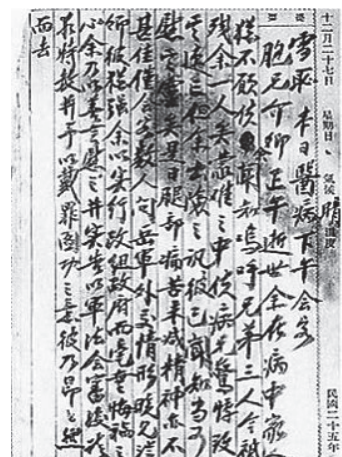 十二月二十七日 星期日 氣候 溫度
民國二十五年
提要
雪恥 本日醫病下午會客
胞兄介卿正午逝世余在病中家人
猶不願使余聞知嗚呼兄弟三人今祇
残余一人矣 之中使病兄驚悸致
其速亡但余出險之訊彼已聞知當可
慰之靈矣是日腿部痛苦未減精神亦不
甚佳僅會客數人問岳軍外交情形晚見漢
卿彼猶強余以实行改組政府而毫無悔禍之
心余乃以善言慰之并实告以軍法会審後當
在特赦并予以戴罪圖功之意彼乃昂
而去